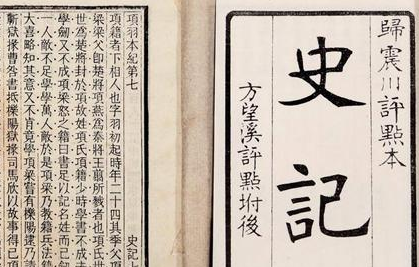 歸震川評點本
史記
方望溪評點坿後
項羽本紀第七 史記上
項籍者下相人也字羽初起時年二十四其季父項
梁梁父即楚將項燕為秦將王翦所戮者也項氏世
世為楚將封於項故姓項氏項籍少時學書不成去
學劍又不成項梁怒之籍曰書足以記名姓而已劍
一人敵不足學學萬人敵於是項梁乃教籍兵法籍
大喜略知其意又不肯竟學項梁嘗有櫟陽逮乃請
蘄獄掾曹咎書抵櫟陽獄掾司馬欣以故事得已項